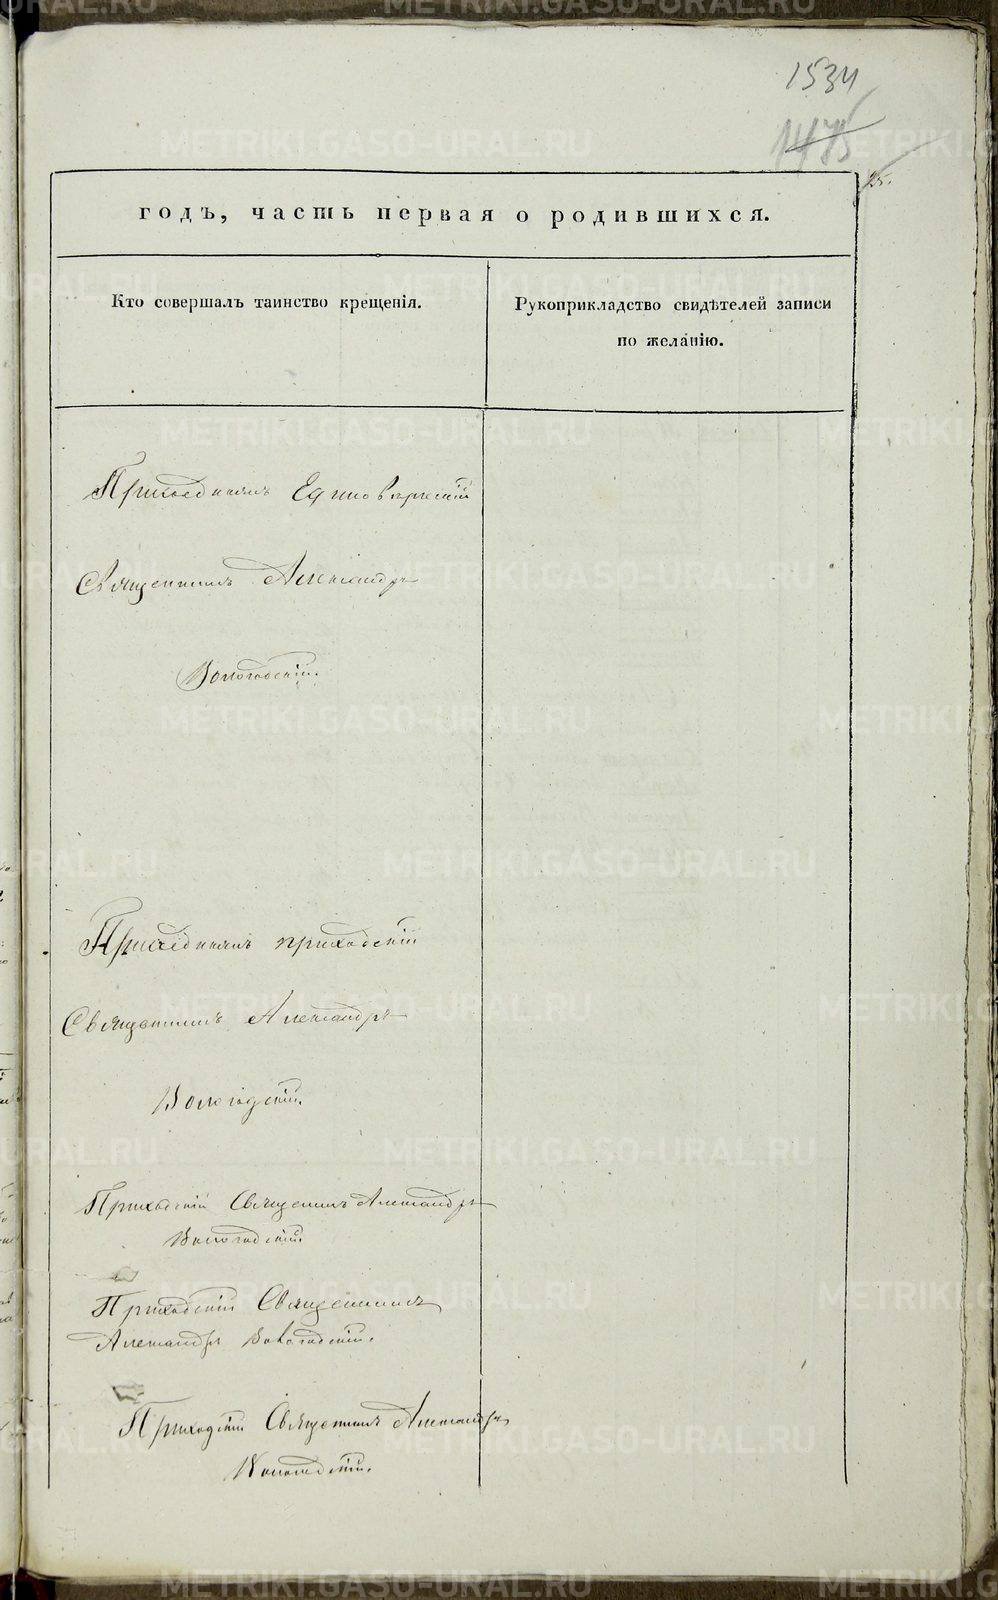 1534
1475
25.
годъ, часть первая о родившихся.
Кто совершалъ таинство крещенія.
Рукоприкладство свидѣтелей записи
по желанію.
Присоединялъ Единовѣрческій
Священникъ Александръ
Вологодскій.
Присоединялъ приходскій
Священникъ Александръ
Вологодскій.
Приходскій Священникъ Александръ
Вологодскій.
Приходскій Священникъ
Александръ Вологодскій.
Приходскій Священникъ Александръ
Вологодскій.
METRIKI.GASO-URAL.RU